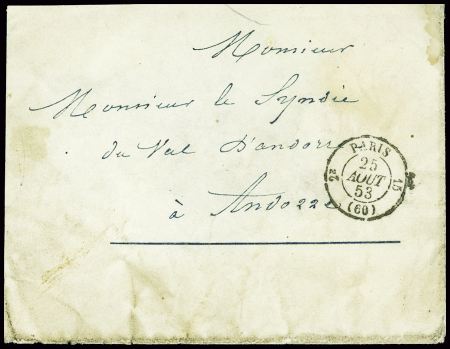 Monsieur
Monsieur le Syndic
du Val D'andorre
à Andorre
PARIS
25
AOUT
53
(60)
15